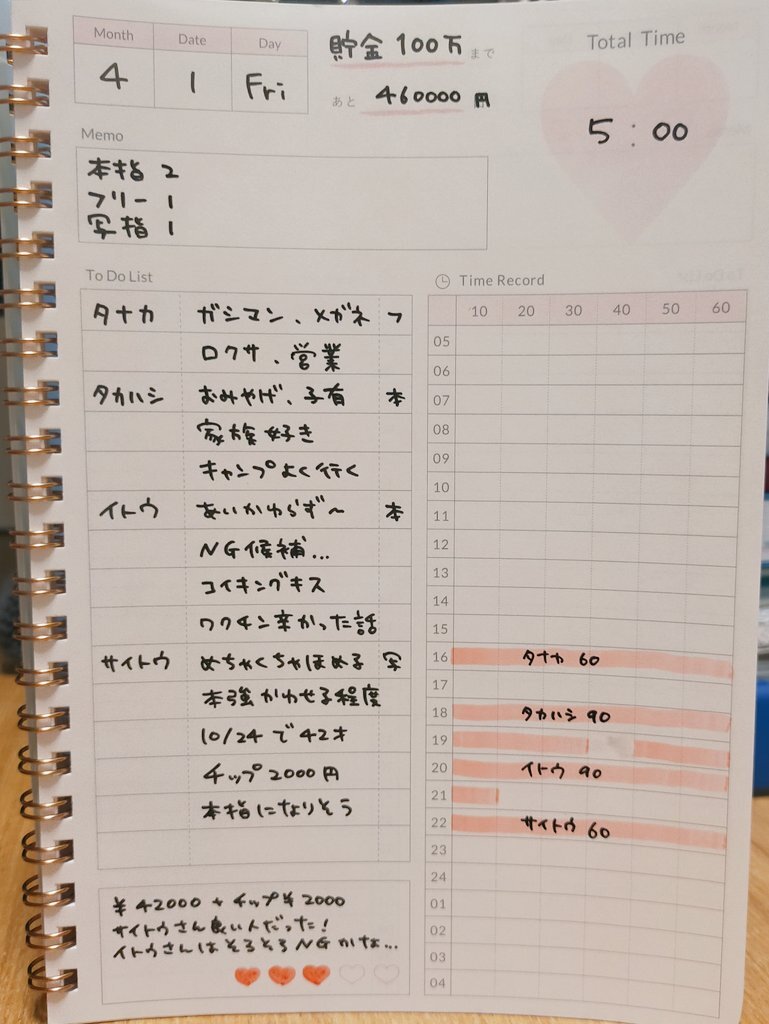 Month Date Day
4 1 Fri
貯金 100万 まで
あと 460000 円
Total Time
5:00
Memo
本指 2
フリー 1
写指 1
To Do List
タナカ ガシマン、メガネ フ
ロクサ、営業
タカハシ おみやげ、子有 本
家族好き
キャンプよく行く
イトウ あいかわらず〜 本
NG候補...
コイキングキス
ワクチン辛かった話
サイトウ めちゃくちゃほめる 写
本強かわせる程度
10/24で42才
チップ2000円
本指になりそう
¥42000+チップ¥2000
サイトウさん良い人だった!
イトウさんはそろそろNGかなぁ...
Time Record
10 20 30 40 50 60
05
06
07
08
09
10
11
12
13
14
15
16 タナカ 60
17
18 タカハシ 90
19
20 イトウ 90
21
22 サイトウ 60
23
24
01
02
03
04